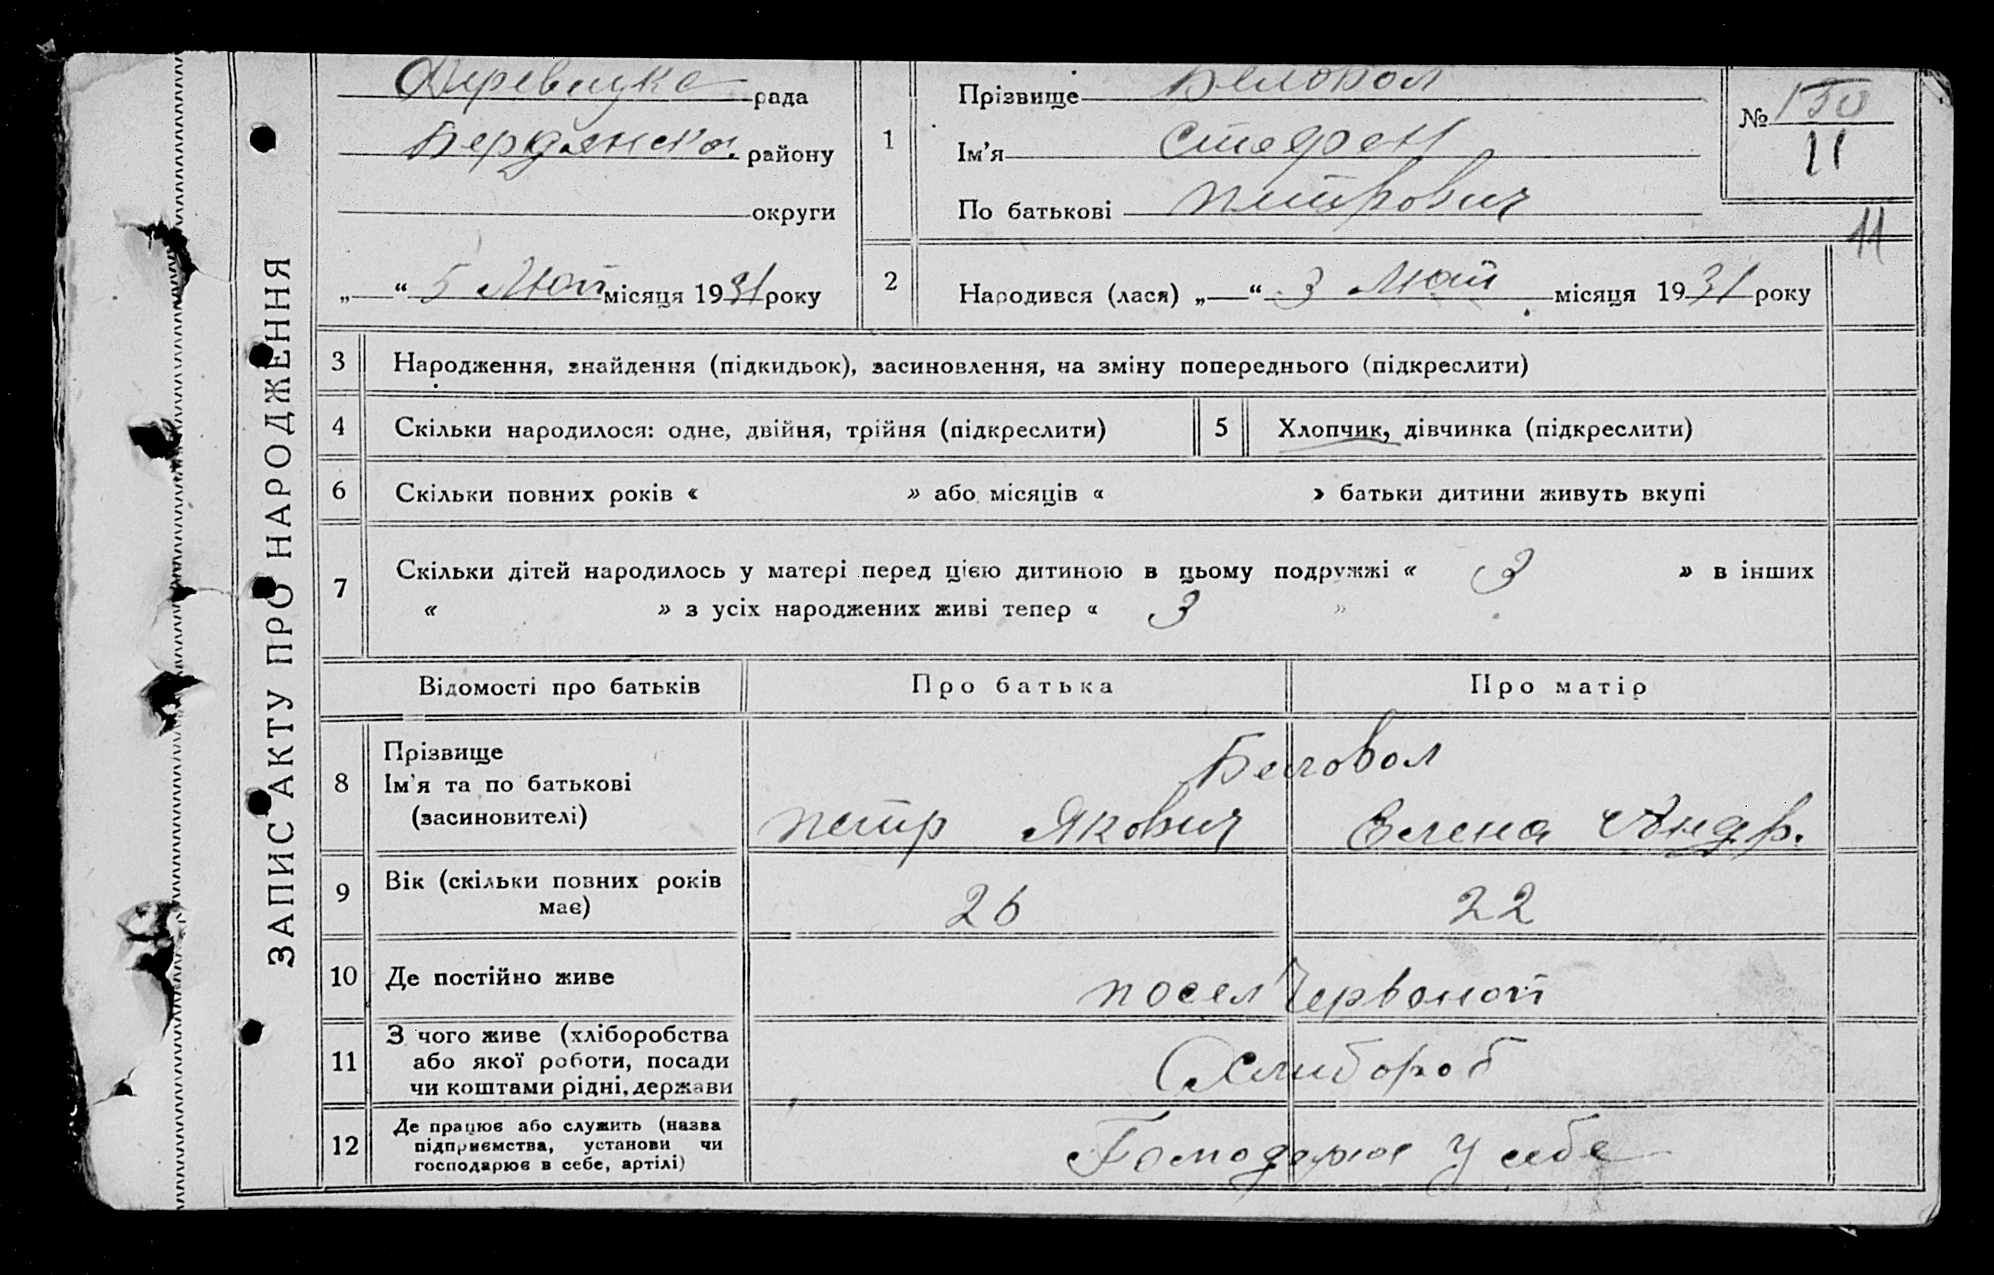 ЗАПИС АКТУ ПРО НАРОДЖЕННЯ
рада
Бердянско. району
округи
„ “ 5 Май місяця 1931 року
1
Прізвище Беловол
Ім'я Стефан
По батькові Петрович
№ 150
11
11
2 Народився (лася) „ “ 3 Май місяця 1931 року
3 Народження, знайдення (підкидьок), засиновлення, на зміну попереднього (підкреслити)
4 Скільки народилося: одне, двійня, трійня (підкреслити)
5 Хлопчик, дівчинка (підкреслити)
6 Скільки повних років « » або місяців « » батьки дитини живуть вкупі
7 Скільки дітей народилось у матері перед цією дитиною в цьому подружжі « 3 » в інших
« » з усіх народжених живі тепер « 3 »
Відомості про батьків Про батька Про матір
8 Прізвище
Ім'я та по батькові
(засиновителі)
Беловол
Петр Якович Елена Андр.
9 Вік (скільки повних років
має)
26 22
10 Де постійно живе посел Червоной
11 З чого живе (хліборобства
або якої роботи, посади
чи коштами рідні, держави
Хлибороб
12 Де працює або служить (назва
підприємства, установи чи
господарює в себе, артілі)
у себе